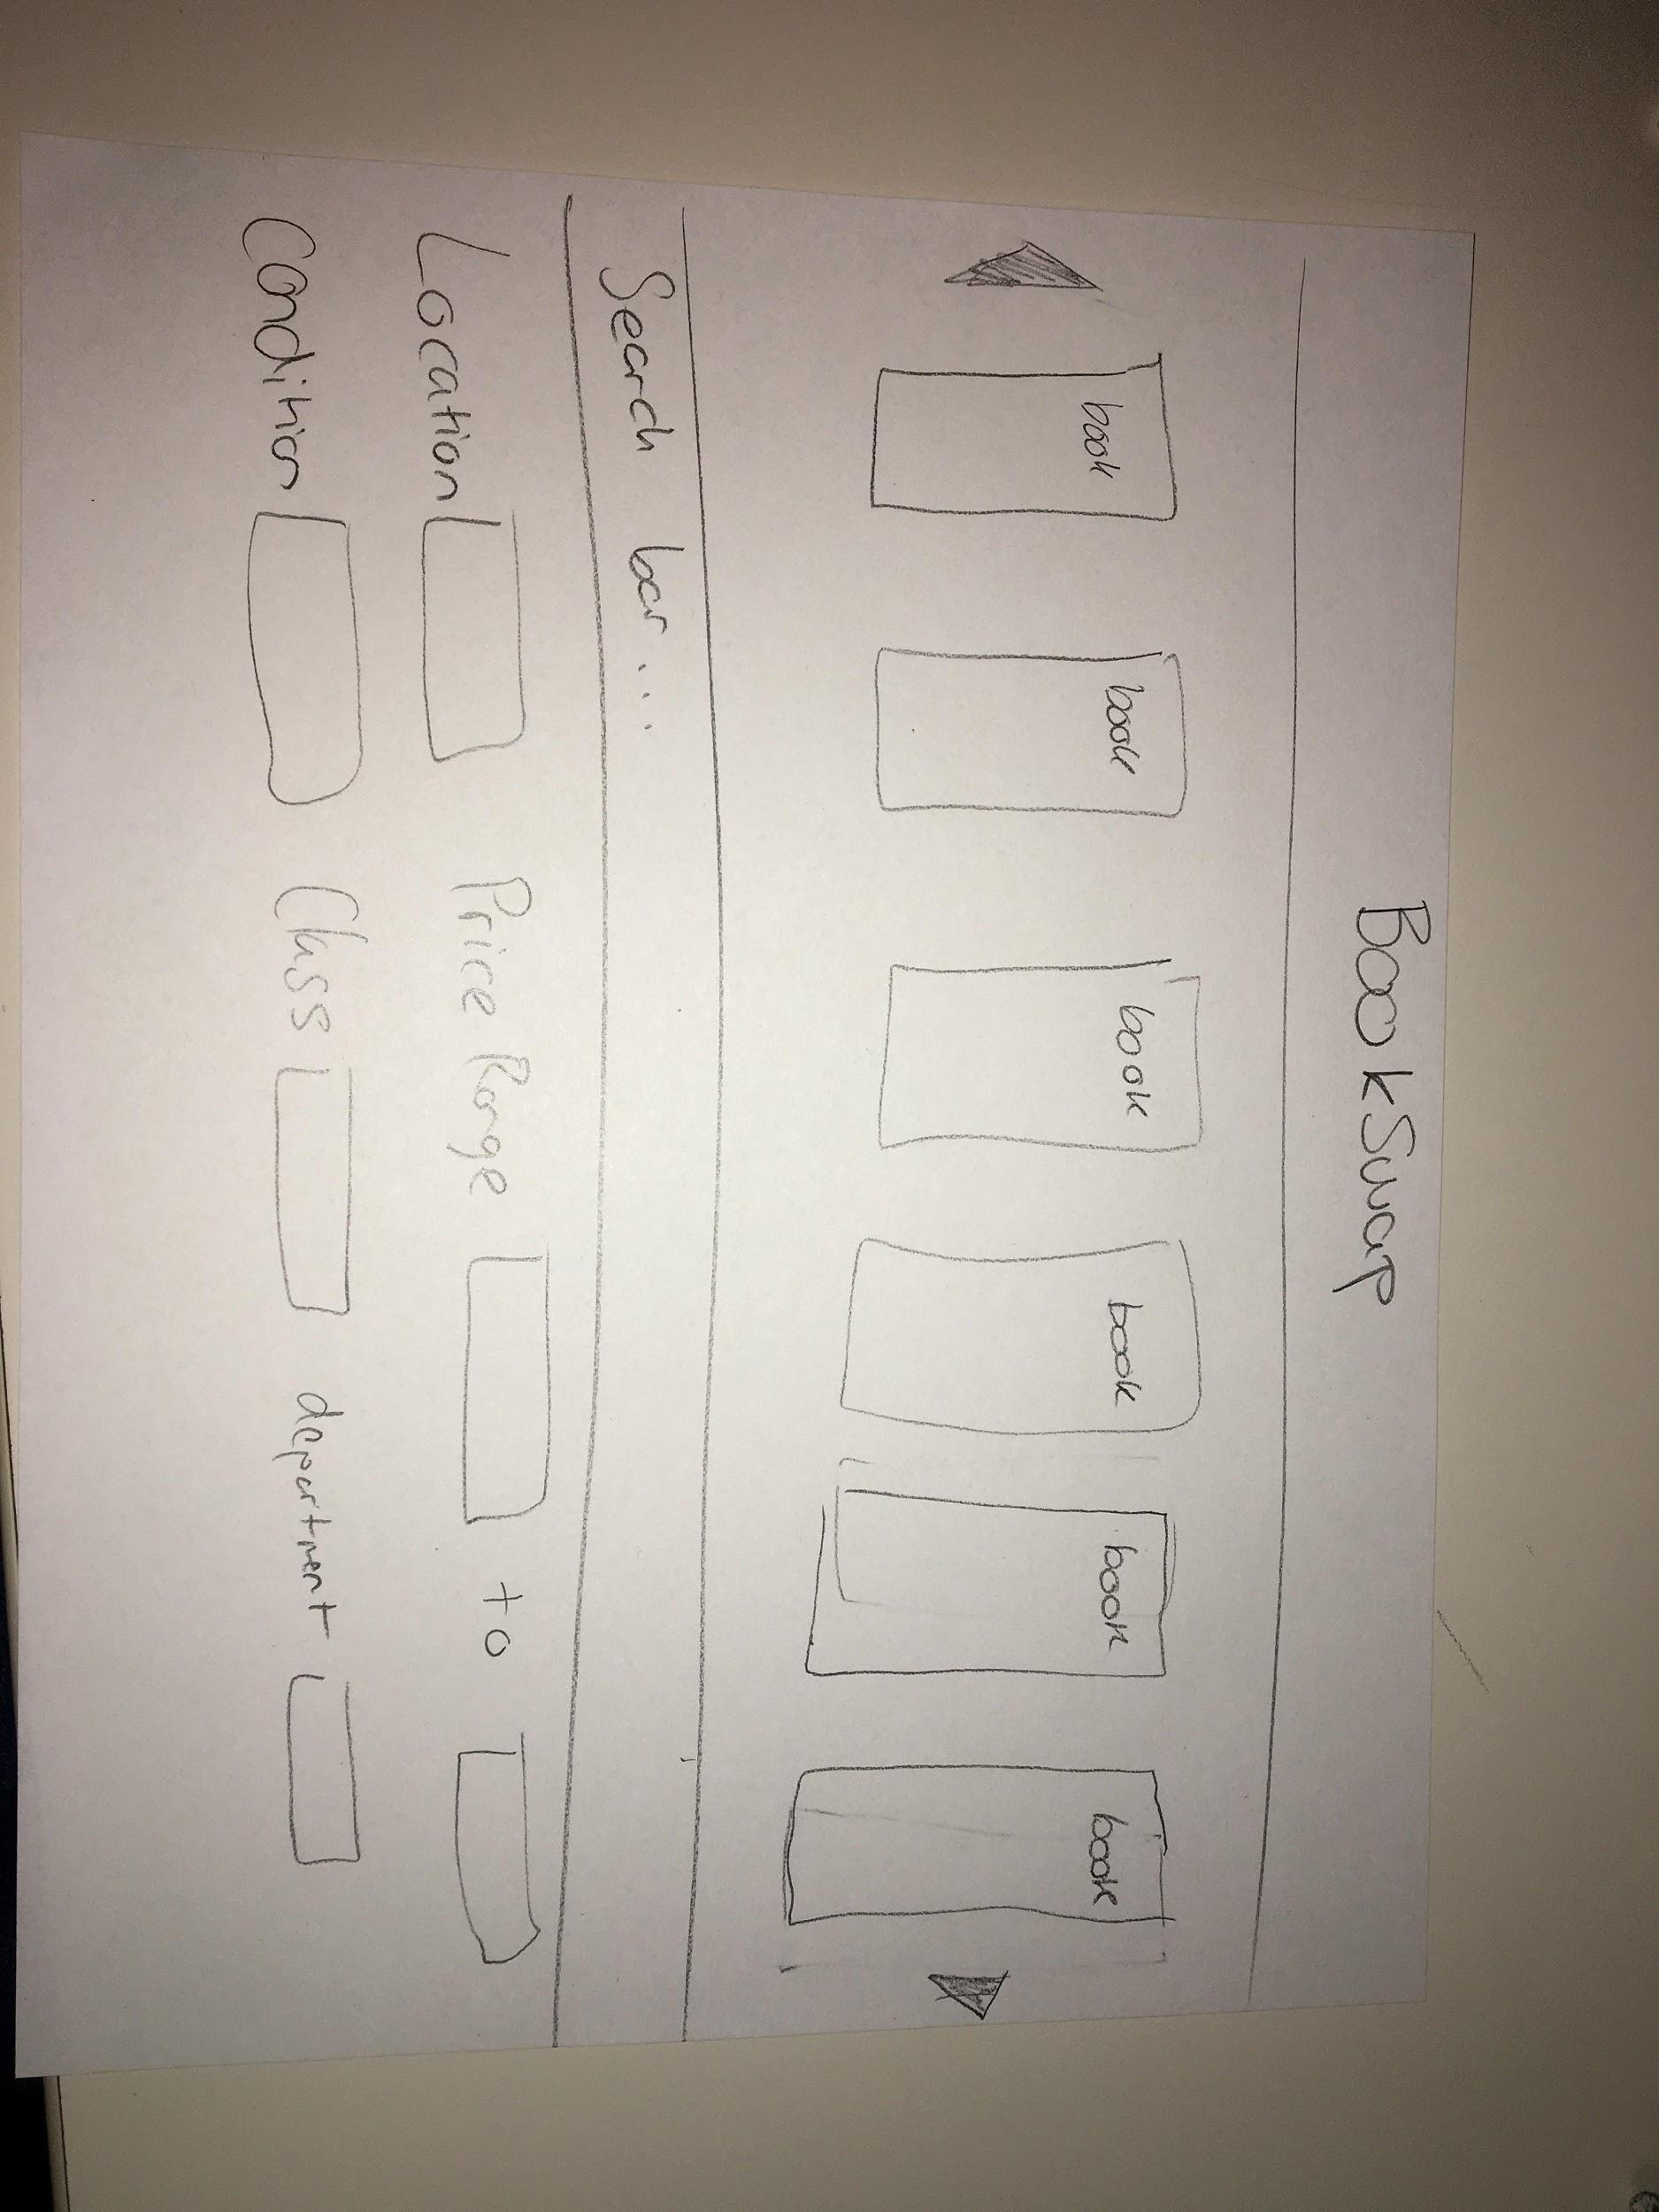 BookSwap
book book book book book book
Search bar...
Location Price Range to
Condition Class department